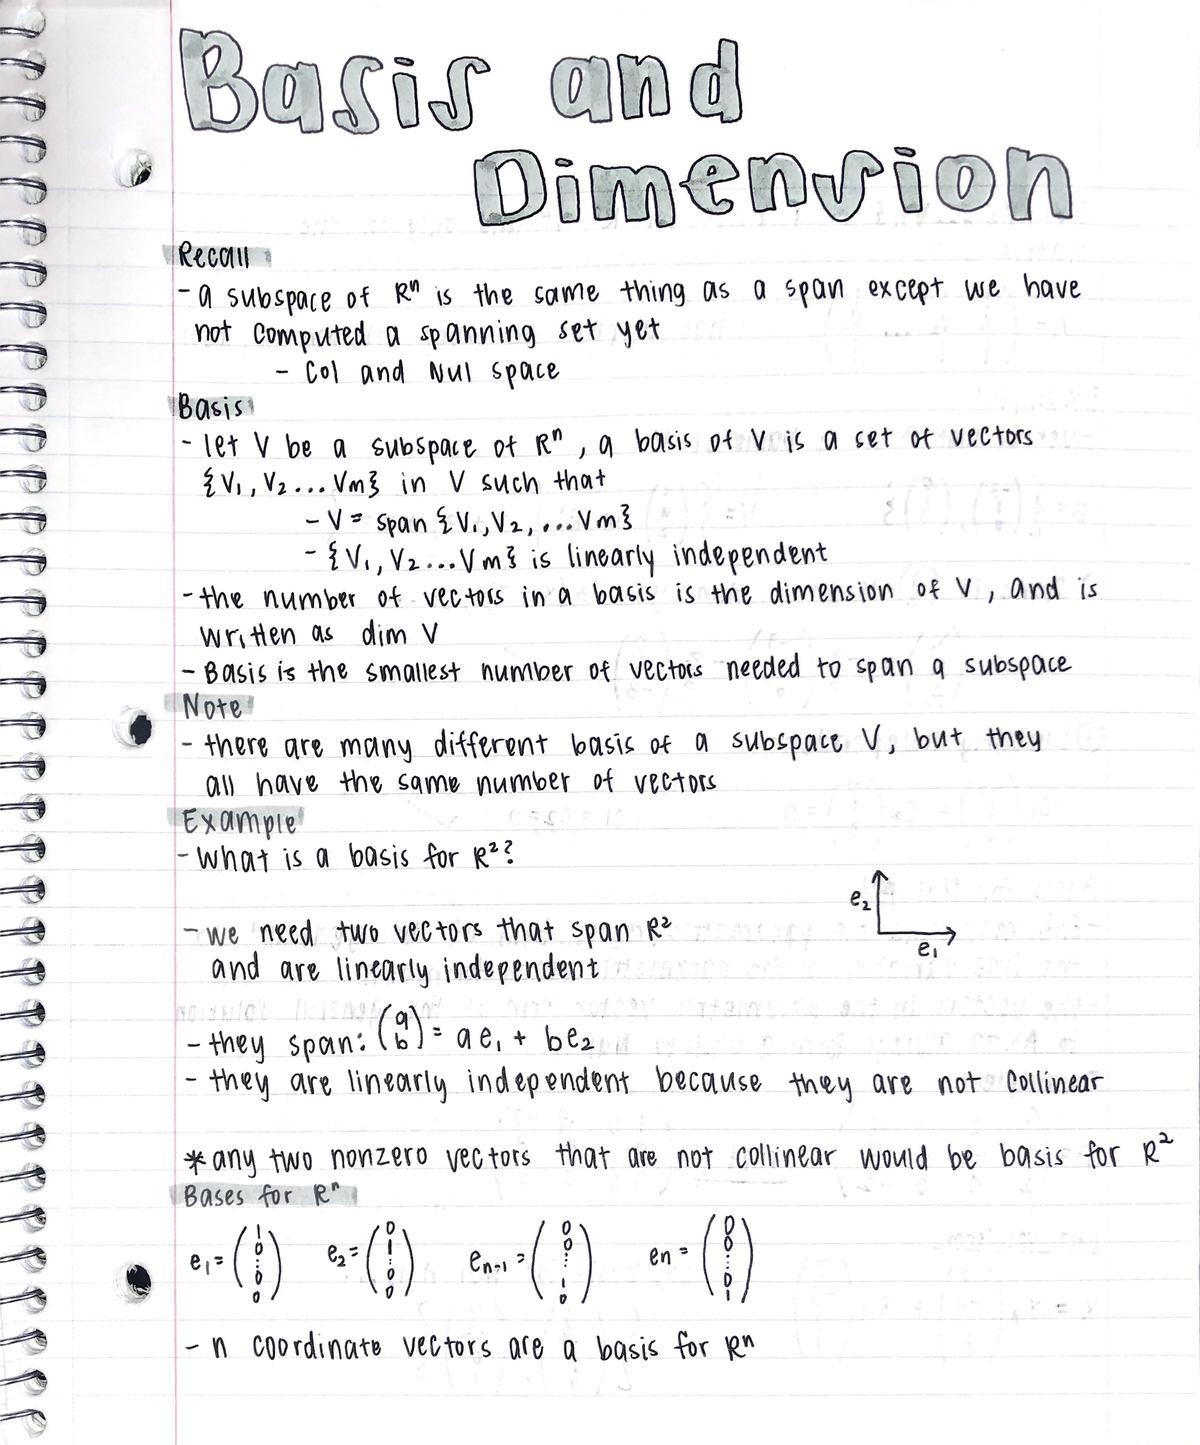 Basis and
Dimension
Recall
- a subspace of Rⁿ is the same thing as a span except we have
not computed a spanning set yet
- Col and Nul space
Basis
- let V be a subspace of Rⁿ, a basis of V is a set of vectors
{V₁, V₂... Vm} in V such that
- V = span {V₁, V₂, ... Vm}
- {V₁, V₂... Vm} is linearly independent
- the number of vectors in a basis is the dimension of V, and is
written as dim V
- Basis is the smallest number of vectors needed to span a subspace
Note
- there are many different basis of a subspace V, but they
all have the same number of vectors
Example
- What is a basis for R²?
e₂
e₁
- we need two vectors that span R²
and are linearly independent
- they span: (a b) = ae₁ + be₂
- they are linearly independent because they are not collinear
* any two nonzero vectors that are not collinear would be basis for R²
Bases for Rⁿ
e₁ = (1 0 ⋮ 0 0) e₂ = (0 1 ⋮ 0 0) eₙ₋₁ = (0 0 ⋮ 1 0) en = (0 0 ⋮ 0 1)
- n coordinate vectors are a basis for Rn